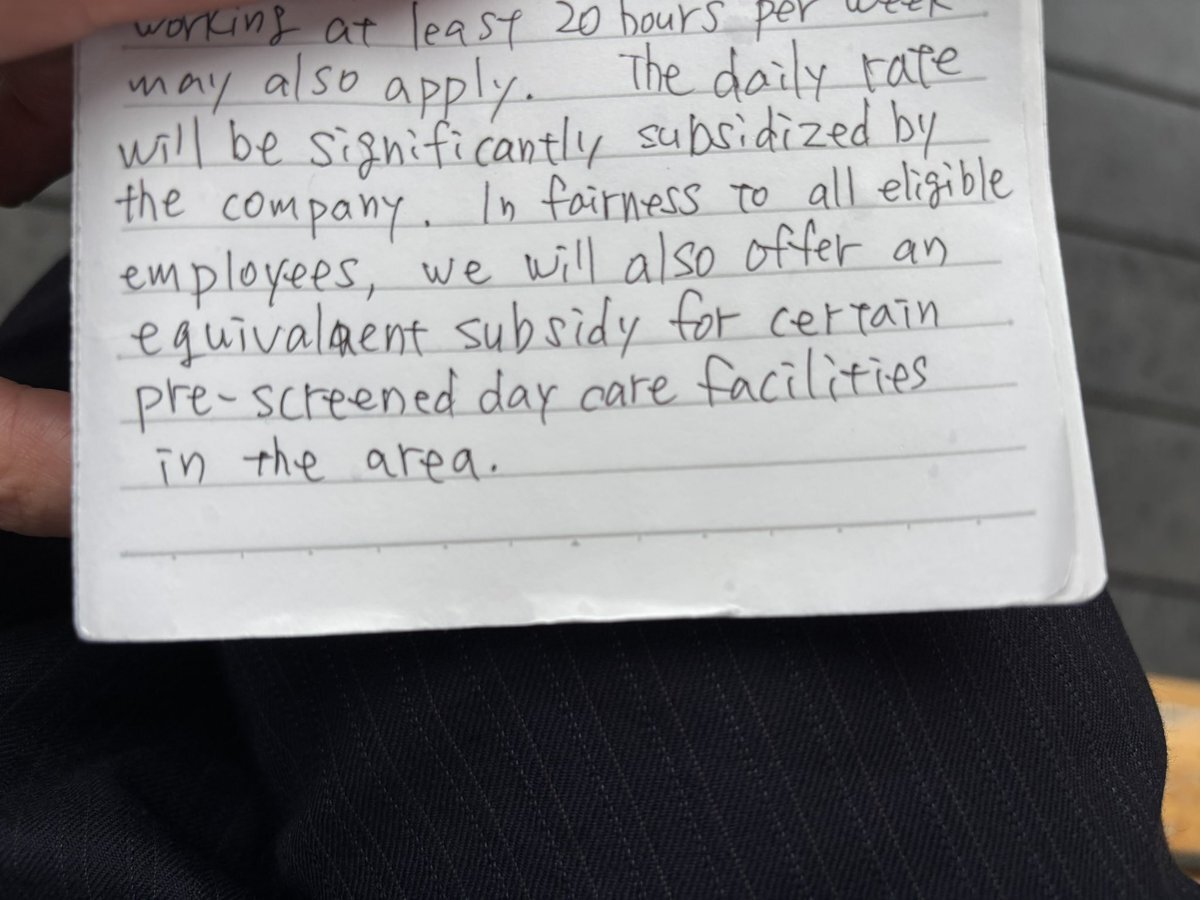 working at least 20 hours per week
may also apply. The daily rate
will be significantly subsidized by
the company. In fairness to all eligible
employees, we will also offer an
equivalent subsidy for certain
pre-screened day care facilities
in the area.